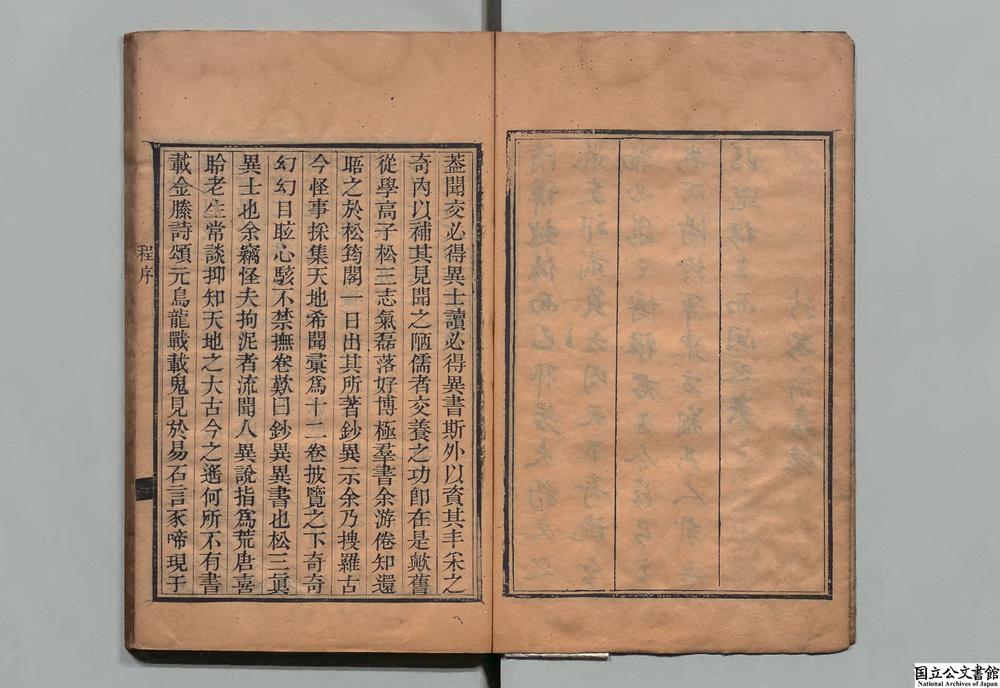 葢聞交必得異士讀必得異書斯外以資其丰采之
奇內以補其見聞之陋儒者交養之功卽在是歟舊
從學高子松三志氣磊落好博極羣書余游倦知還
晤之於松筠閣一日出其所著鈔異示余乃搜羅古
今怪事採集天地希聞彙爲十二卷披覽之下奇奇
幻幻目眩心駭不禁撫卷歎曰鈔異異書也松三眞
異士也余竊怪夫拘泥者流聞人異說指爲荒唐喜
聆老生常談抑知天地之大古今之遙何所不有書
載金縢詩頌元鳥龍戰載鬼見於易石言豕啼現于
程序
国立公文書館
National Archives of Japan